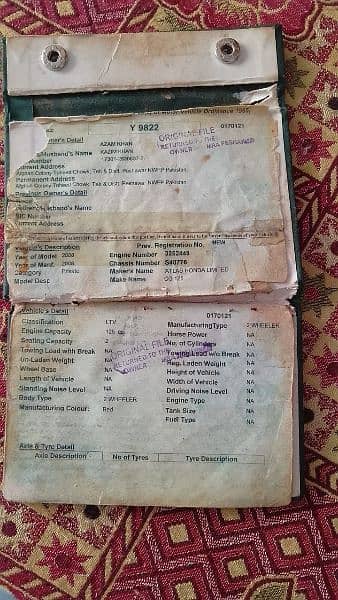 Motor Vehicle Ordinance 1965,
Y 9822
0170121
ORIGINAL FILE
RETURNED TO THE
OWNER
MRA PESHAWAR
Owner's Detail AZAM KHAN
Husband's Name KAZIM KHAN
Number
Current Address
Afghan Colony Tehseel Chowk, Teh & Distt, Peshawar NWFP Pakistan
Permanent Address
Afghan Colony Tehseel Chowk, Teh & Distt, Peshawar NWFP Pakistan
Previous Owner's Detail
Father/Husband's Name
NIC Number
Current Address
Vehicle's Description Prev. Registration No. NEW
Year of Model 2008 Engine Number 3252449
Year of Manf. 2008 Chassis Number S40776
Category Private Maker's Name ATLAS HONDA LIMITED
Model Desc Make Name CG 125
Vehicle's Detail 0170121
Classification LTV Manufacturing Type 2 WHEELER
Engine Capacity 125 Horse Power NA
Seating Capacity 2 No. of Cylinders NA
Towing Load with Break NA Towing Load w/o Break NA
Un-Laden Weight NA Reg. Laden Weight NA
Wheel Base NA Height of Vehicle NA
Length of Vehicle NA Width of Vehicle NA
Standing Noise Level NA Driving Noise Level NA
Body Type 2 WHEELER Engine Type NA
Manufacturing Colour: Red Tank Size NA
Fuel Type NA
ORIGINAL FILE
RETURNED TO THE
OWNER
Axle & Tyre Detail
Axle Description No of Tyres Tyre Description